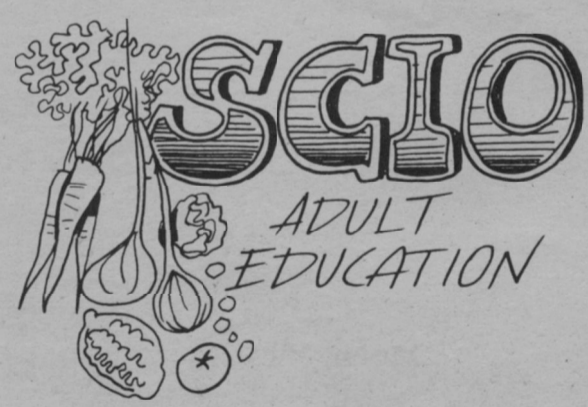 SCIO
ADULT
EDUCATION